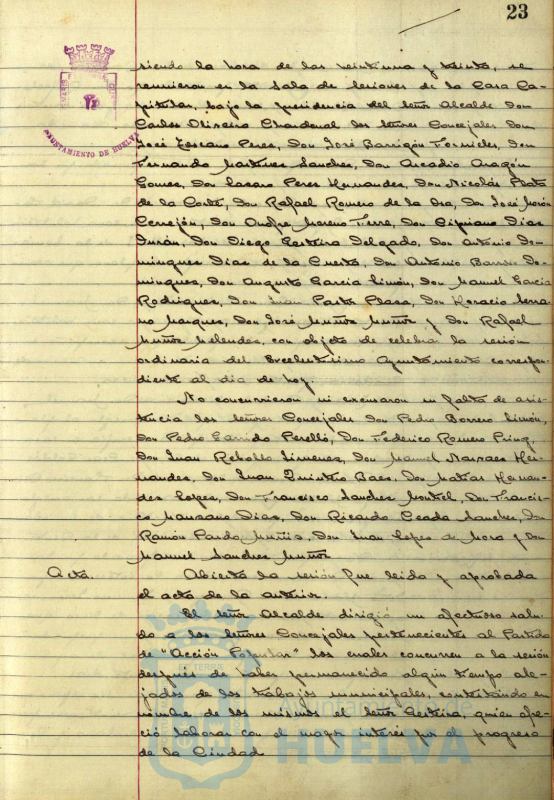 23
AYUNTAMIENTO DE HUELVA
siendo la hora de las veintiuna y treinta, se
reunieron en la Sala de Sesiones de la Casa Ca-
pitular, bajo la presidencia del Señor Alcalde Don
Carlos Oliveira Chardenal los Señores Concejales Don
José Lescano Peres, Don José Barrigón Fornieles, Don
Fernando Martines Sanches, Don Arcadio Aragón
Gomes, Don Lasaro Peres Hernandes, Don Nicolás Plata
de la Corte, Don Rafael Romero de la Osa, Don José Morón
Cerrejón, Don Onofre Moreno Ferre, Don Cipriano Dias
Durán, Don Diego Certeira Delgado, Don Antonio Do-
mingues Dias de la Cuesta, Don Antonio Barroso Do-
mingues, Don Augusto Garcia Simón, Don Manuel Garcia
Rodrigues, Don Juan Pastor Plasa, Don Horacio Serra-
no Marques, Don José Muños Muños y Don Rafael
Muños Melendes, con objeto de celebrar la sesión
ordinaria del Excelentisimo Ayuntamiento correspon-
diente al dia de hoy.
No concurrieron ni excusaron su falta de asis-
tencia los Señores Concejales Don Pedro Borrero Limón,
Don Pedro Garrido Perelló, Don Federico Romero
Don Juan Rebollo Jimenes, Don Manuel Narvaes Her-
nandes, Don Juan Quintero Baes, Don Matias Hernan-
des Lopes, Don Francisco Sanches Montiel, Don Francis-
co Manzano Dias, Don Ricardo Sanches, Don
Ramón Pardo Muñis, Don Juan Lopes de Mora y Don
Manuel Sanches Muños
Acta. Abierta la sesión fue leida y aprobada
el acta de la anterior.
El Señor Alcalde dirigió un afectuoso salu-
do a los Señores Concejales pertenecientes al Partido
de "Acción Popular" los cuales concurren a la sesión
después de haber permanecido algun tiempo ale-
jados de los trabajos municipales, contestando en
nombre de los mismos el Señor Certeira, quien ofre-
ció laborar con el mayor interés por el progreso
de la Ciudad
Ayuntamiento de
HUELVA